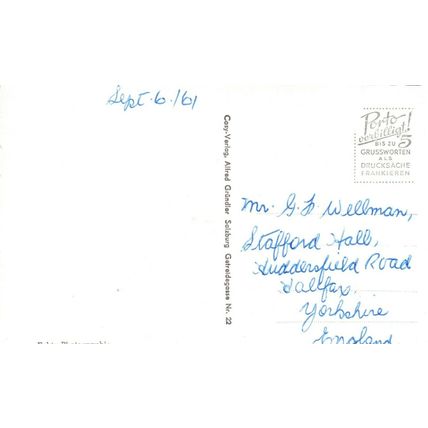 Sept. 6./61
Cosy-Verlag, Alfred Gründler Salzburg Getreidegasse Nr. 22
Porto
verbilligt!
BIS ZU 5
GRUSSWORTEN
ALS
DRUCKSACHE
FRANKIEREN
Mr. G. F Wellman,
Stafford Hall,
Huddersfield Road
Halifax,
Yorkshire
England